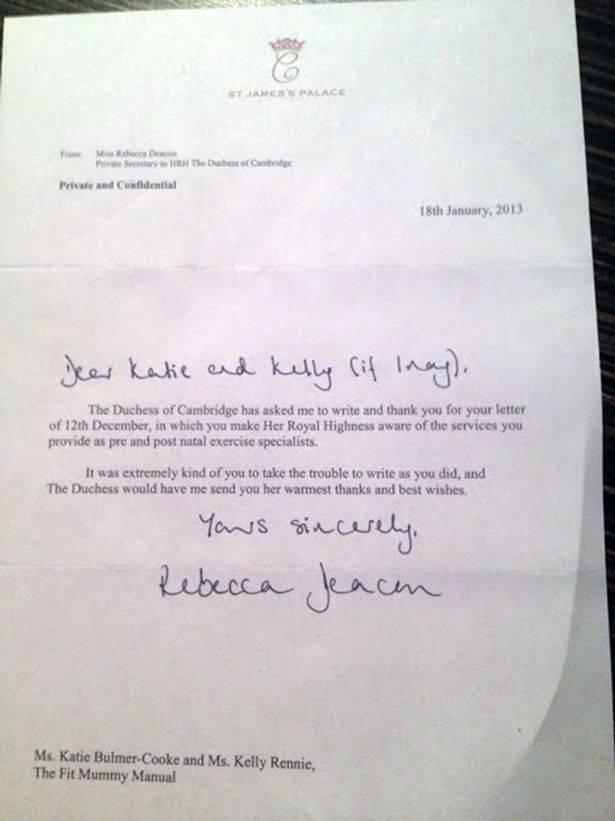 C
ST JAMES'S PALACE
From: Miss Rebecca Deacon
Private Secretary to HRH The Duchess of Cambridge
Private and Confidential
18th January, 2013
Dear Katie and Kelly (if I may),
The Duchess of Cambridge has asked me to write and thank you for your letter
of 12th December, in which you make Her Royal Highness aware of the services you
provide as pre and post natal exercise specialists.
It was extremely kind of you to take the trouble to write as you did, and
The Duchess would have me send you her warmest thanks and best wishes.
Yours sincerely,
Rebecca Deacon
Ms. Katie Bulmer-Cooke and Ms. Kelly Rennie,
The Fit Mummy Manual